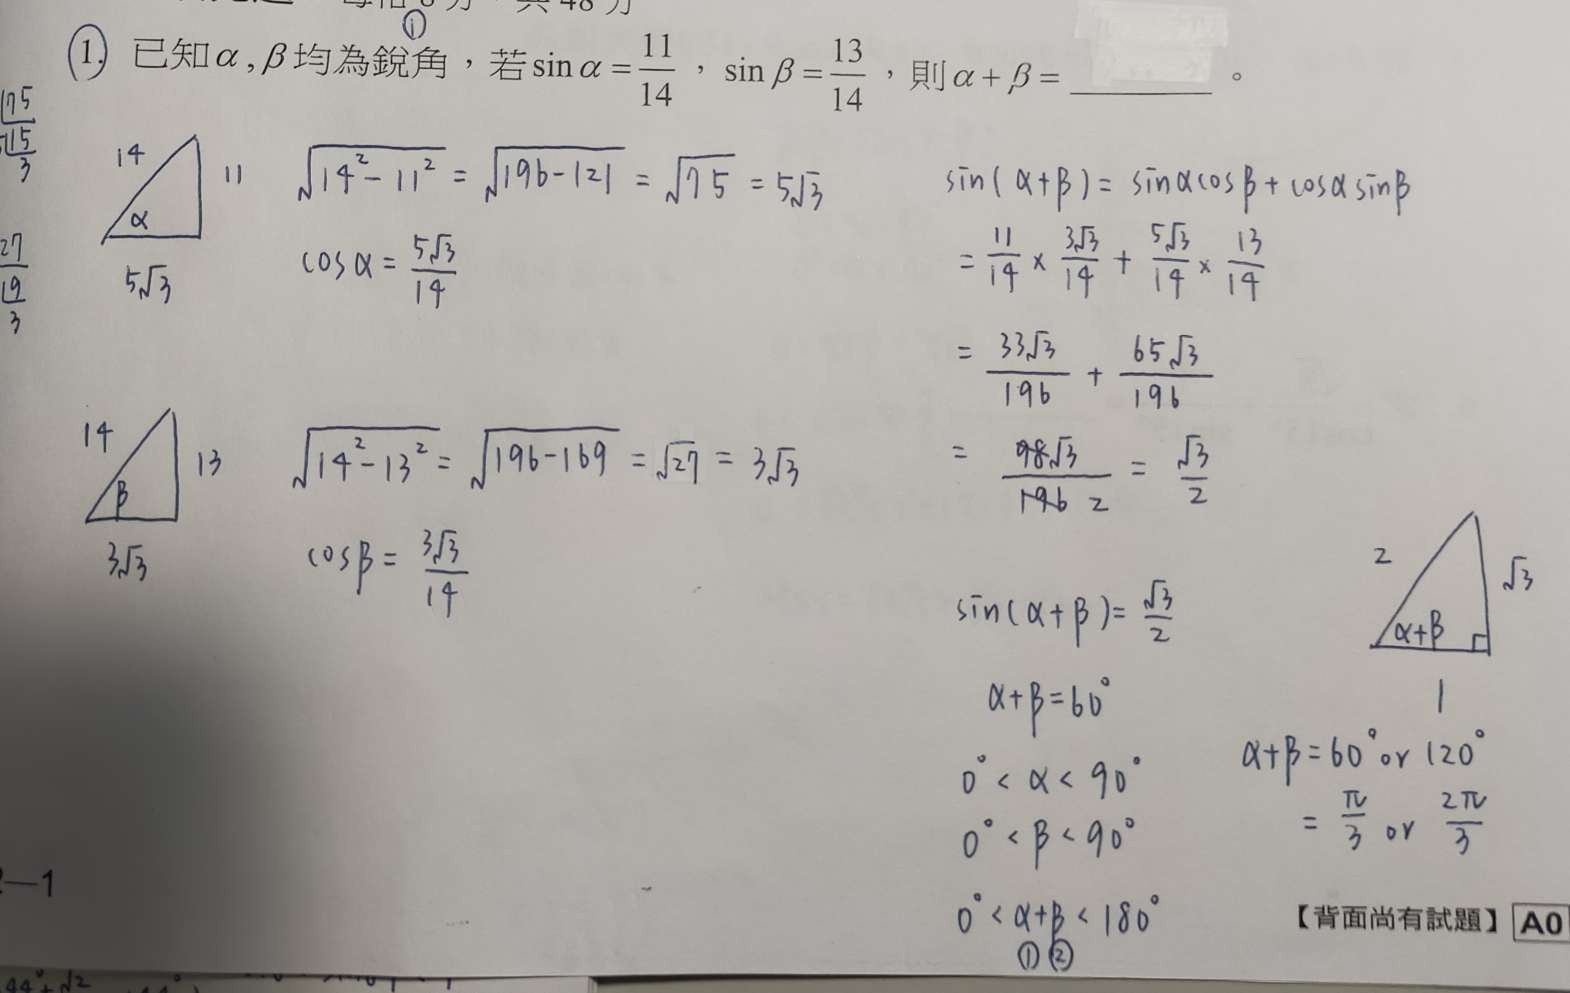 48
①
1. 已知α,β均為銳角,若sin α = 11/14,sin β = 13/14,則α + β = ________。
175
15
3
27
19
3
14
11
α
5√3
√(14² - 11²) = √(196 - 121) = √75 = 5√3
cos α = 5√3/14
14
13
β
3√3
√(14² - 13²) = √(196 - 169) = √27 = 3√3
cos β = 3√3/14
sin(α+β) = sinα cosβ + cosα sinβ
= 11/14 × 3√3/14 + 5√3/14 × 13/14
= 33√3/196 + 65√3/196
= 98√3/196 2 = √3/2
sin(α+β) = √3/2
α+β = 60°
0° < α < 90°
0° < β < 90°
0° < α+β < 180°
① ②
2
√3
α+β
1
α+β = 60° or 120°
= π/3 or 2π/3
—1
【背面尚有試題】 A0